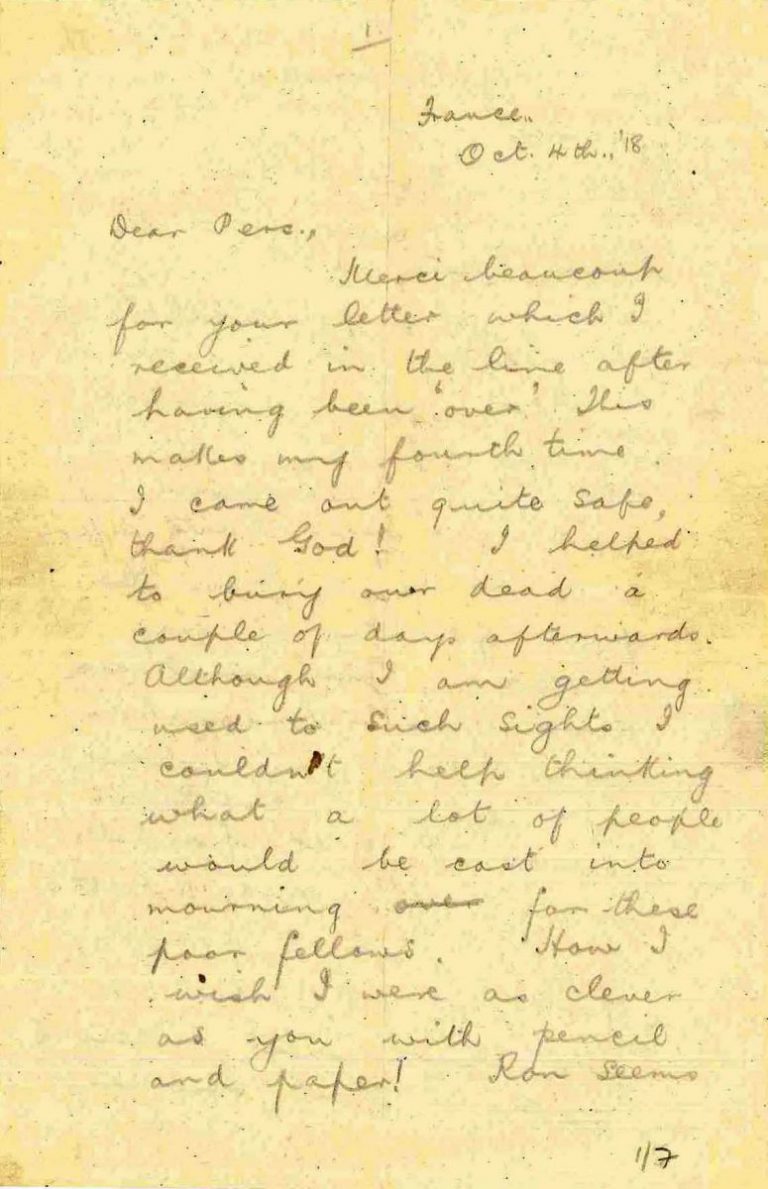 1
France..
Oct. 4th., '18
Dear Perc.,
Merci beaucoup
for your letter which I
received in the line after
having been 'over' This
makes my fourth time.
I came out quite safe,
thank God! I helped
to bury our dead a
couple of days afterwards.
Although I am getting
used to such sights I
couldn't help thinking
what a lot of people
would be cast into
mourning over for these
poor fellows. How I
wish I were as clever
as you with pencil
and paper! Ron seems
1/7